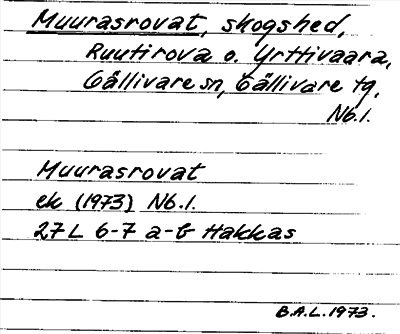 Muurasrovat, skogshed,
Ruutirova o. Yrttivaara,
Gällivare sn, Gällivare tg,
Nb.l.
Muurasrovat
ek (1973) Nb.l.
27L 6-7 a-b Hakkas
B.A.L. 1973.